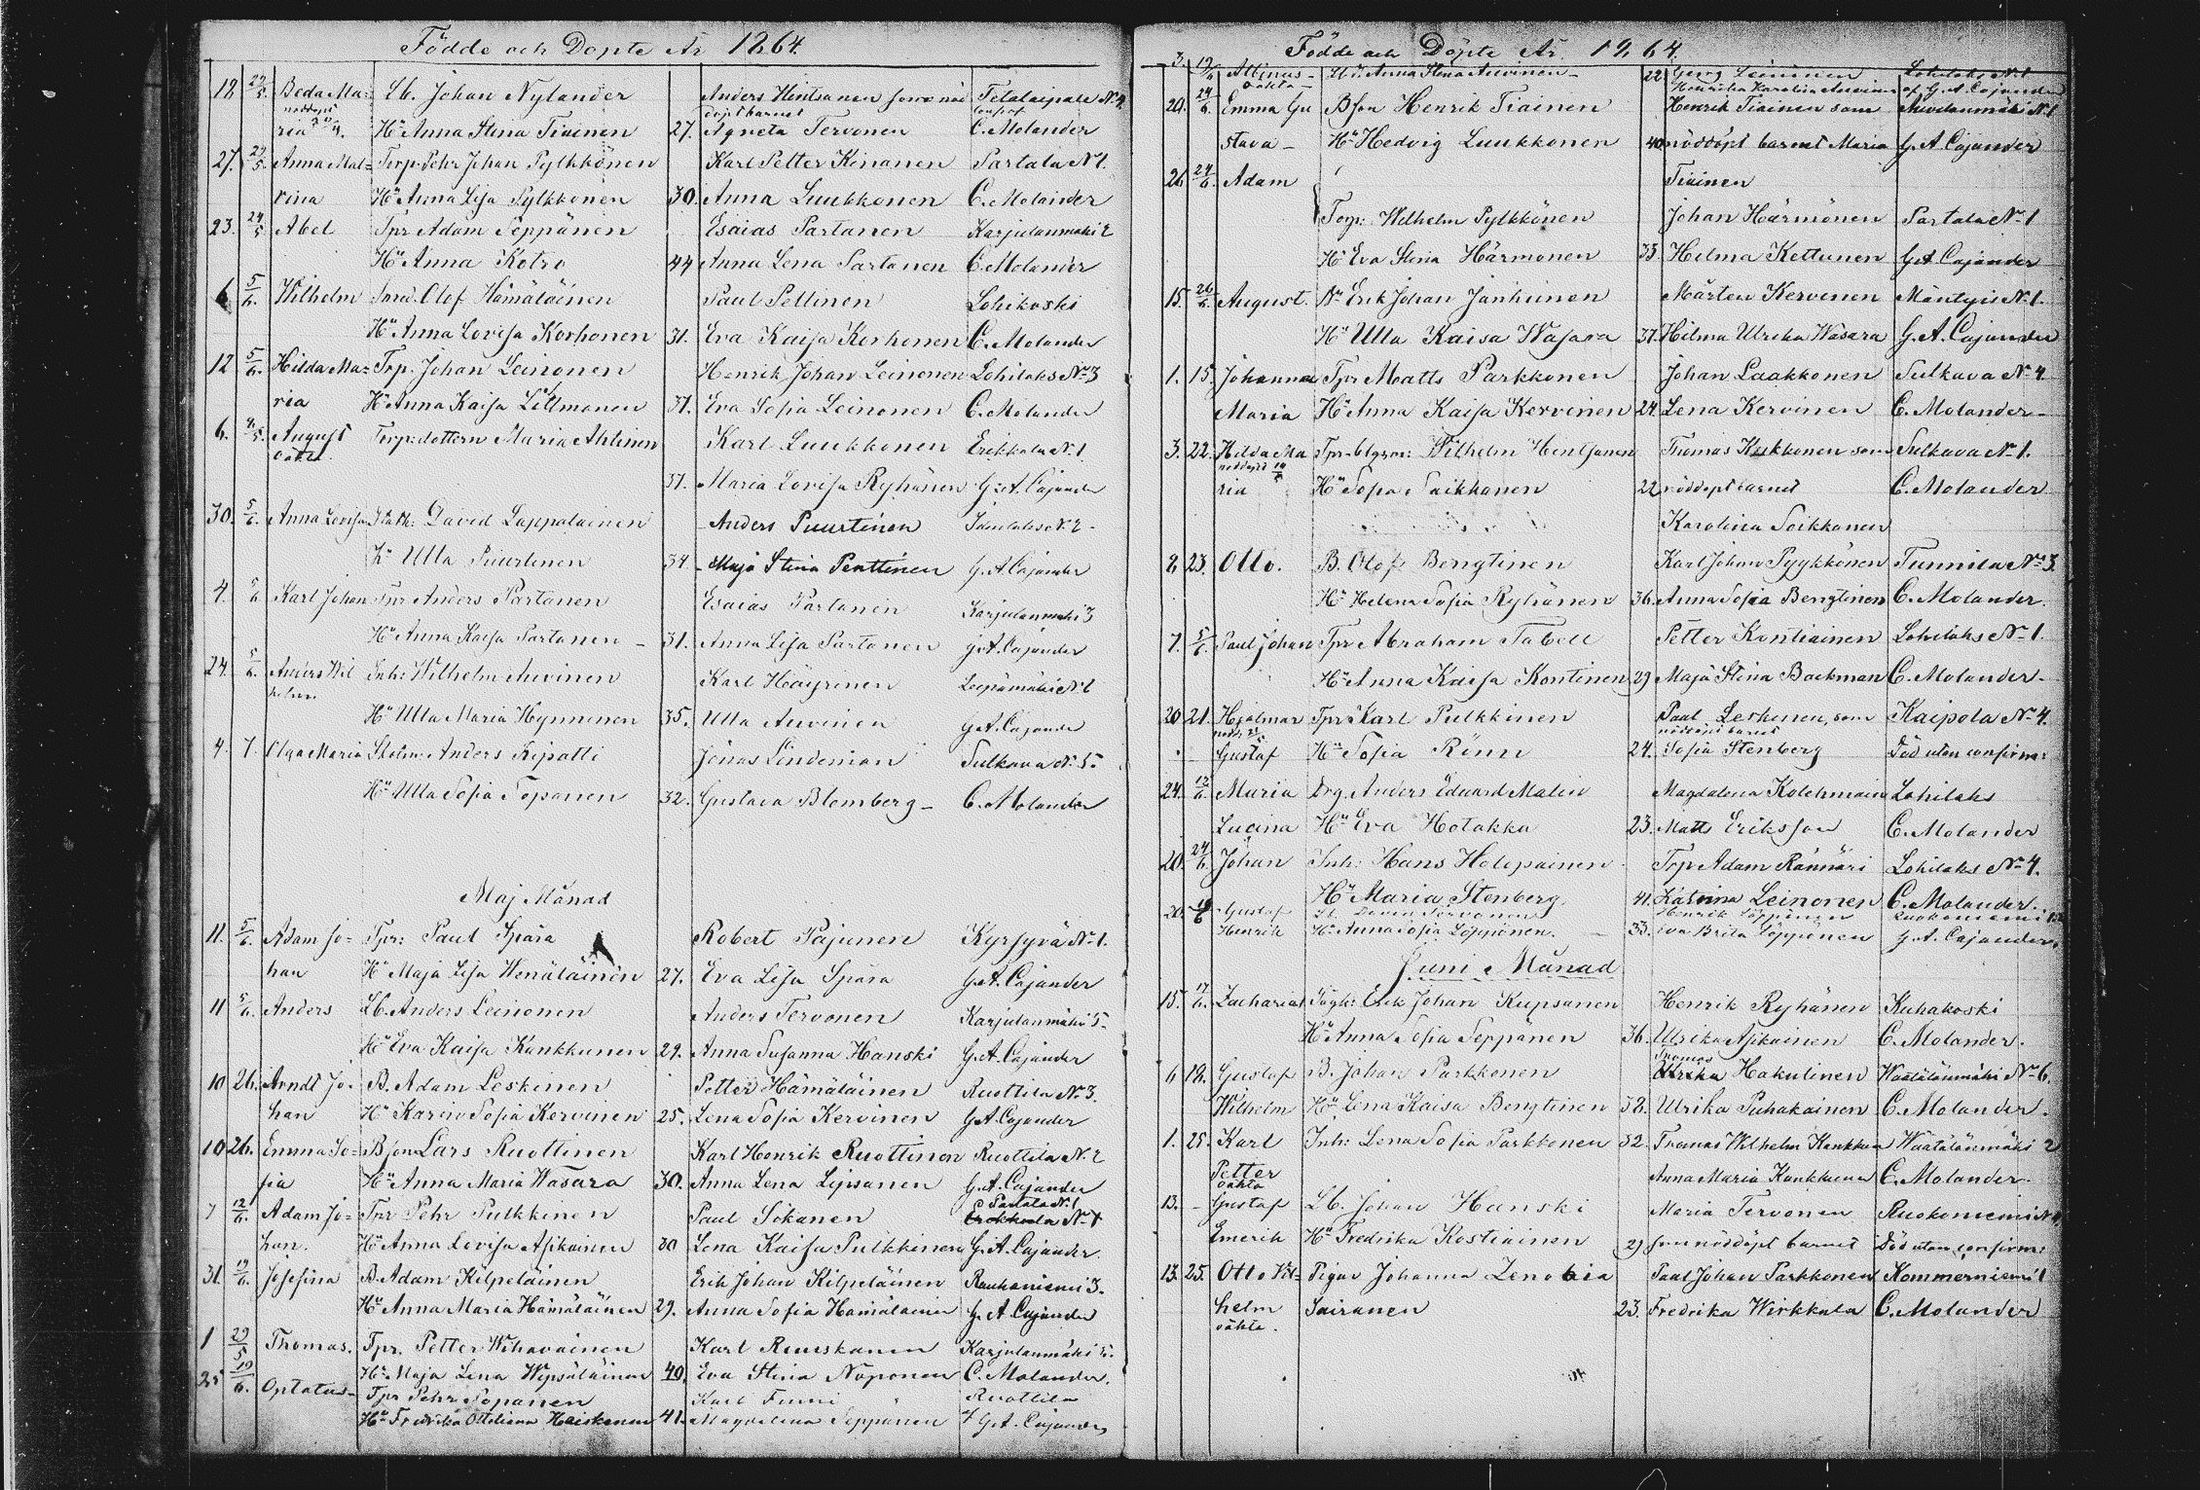 Födde och Döpte År 1864.
18 29/5. Beda Ma= Lb. Johan Nylander Anders Hintsanen som näd Telataipale N 4
nöddöpt döpt barnet
ria Hu Anna Stina Tiainen 27. Agneta Tervonen C. Molander
27. 29/5 Anna Mat= Torp. Pehr Johan Pylkkönen Karl Petter Kinanen Partala N 1.
rina Hu Anna Lisa Pylkkönen 30. Anna Luukkonen C. Molander
23. 24/5 Abel Tpr Adam Seppänen Esaias Partanen Karjulanmäki 2
Hu Anna Kotro 44 Anna Lena Partanen C. Molander
6 5/6. Wilhelm Smed. Olof Hämäläinen Paul Pellinen Lohikoski
Hu Anna Lovisa Korhonen 31. Eva Kaisa Korhonen C. Molander
12 5/6. Hilda Ma= Trp. Johan Leinonen Henrik Johan Leinonen Lohilaks No 3
ria Hu Anna Kaisa Littmanen 37. Eva Sofia Leinonen C. Molander
6. August Torp: dottern Maria Ahtinen Karl Luukkonen Erikkala N 1
oäkta
37. Maria Lovisa Ryhänen G. A. Cajander
30. 5/6. Anna Lovisa David Lappalainen Anders Puurtinen N 2
Hu Ulla Puurtinen 34 Maja Stina Penttinen G. A. Cajander
4. 5/6 Karl Johan Tpr Anders Partanen Esaias Partanen Karjulanmäki 3
Hu Anna Kaisa Partanen 31. Anna Lisa Partanen G. A. Cajander
24. 5/6. Anders Wil Inh: Wilhelm Auvinen Karl Häyrinen Leipämäki N 1
helm
Hu Ulla Maria Hynninen 35. Ulla Auvinen G. A. Cajander
4. 7. Olga Maria Anders Kopatti Jonas Lindeman Sulkava N. 5.
Hu Ulla Sofia Toponen 32. Gustava Blomberg C. Molander
Maj Månad
11. 5/6. Adam Jo= Tpr: Paul Spåra Robert Pajunen Kyrsyvä N 1.
han Hu Maja Lisa Wenäläinen 27. Eva Lisa Spåra G. A. Cajander
11 5/6. Anders Lb. Anders Leinonen Anders Tervonen Karjulanmäki 5
Hu Eva Kaisa Kankkunen 29. Anna Susanna Hanski G. A. Cajander
10 26. Arndt Jo= B. Adam Leskinen Petter Hämäläinen Ruottila No 3.
han Hu Karin Sofia Kervinen 25. Lena Sofia Kervinen G. A. Cajander
10 26. Emma So= Bson Lars Ruottinen Karl Henrik Ruottinen Ruottila N. 2
fia Hu Anna Maria Wasara 30. Anna Lena Lipsanen G. A. Cajander
7 12/6. Adam Jo= Tpr Pehr Pulkkinen Paul Sikanen Partala N. 1
han. Hu Anna Lovisa Asikainen 30 Lena Kaisa Pulkkinen G. A. Cajander.
31. 19/6. Josefina B. Adam Kilpeläinen Erik Johan Kilpeläinen Rauhaniemi 3.
Hu Anna Maria Hämäläinen 29. Anna Sofia Hämäläinen G. A. Cajander
1 29/5 Thomas. Tpr. Petter Wihavainen Karl Reuskanen Karjulanmäki 5.
Hu Maja Lena Wepsäläinen 40. Eva Stina Noponen C. Molander.
25 19/6. Optatus Tpr Pehr Toponen Karl Finni Ruottila
Hu Fredrika Ottiliana Haiskanen 41. Magdalena Seppänen G. A. Cajander
Födde och Döpte År 1864.
3. 19/6 Altinus Anna Stina Auvinen 22 Georg Leininen Lohilaks N 1
oäkta Henrika Karolina Auvinen af G. A. Cajander
20. 24/6. Emma Gu Bson Henrik Tiainen Henrik Tiainen som Auvilanmäki N 1
stava Hu Hedvig Luukkonen 40 nöddöpt barnet Maria G. A. Cajander
26. 24/6. Adam Tiainen
Torp: Wilhelm Pylkkönen Johan Härmönen Partala N 1
Hu Eva Stina Härmonen 33. Helma Kettunen G. A. Cajander
15. 26/6. August. Nu Erik Johan Janhunen Mårten Kervinen Mäntyis N 1.
Hu Ulla Kaisa Wasara 37. Hilma Ulrika Wasara G. A. Cajander
1. 15. Johanna Tpr Matts Parkkonen Johan Laakkonen Sulkava N 4
Maria Hu Anna Kaisa Kervinen 24. Lena Kervinen C. Molander
3. 22. Hilda Ma Wilhelm Hintsanen Thomas Kukkonen som Sulkava N 1.
nöddöpt
ria Hu Sofia Soikkanen 22 nöddöpt barnet C. Molander
Karolina Soikkanen
8 23. Otto. B. Olof Bengtinen Karl Johan Pyykkönen Tunnila No 3.
Hu Helena Sofia Ryhänen 36. Anna Sofia Bengtinen C. Molander.
7. 5/6. Paul Johan Tpr Abraham Tabell Petter Kontiainen Lohilaks N 1.
Hu Anna Kaisa Kontinen 29 Maja Stina Backman C. Molander
20 21. Hjalmar Tpr Karl Pulkkinen Paul Leskinen, som Kaipola N 4.
nöddöpt barnet
Gustaf Hu Sofia Rönn 24. Sofia Stenberg Död utan confirm:
24. 12/6 Maria Drg. Anders Eduard Malin Magdalena Kolehmain Lohilaks
Lucina Hu Eva Hotakka 23. Matts Eriksson C. Molander
20. 24/6. Johan Inh: Hans Holopainen Trp Adam Rännäri Lohilaks N 4.
Hu Maria Stenberg 41. Katrina Leinonen C. Molander.
20. Gustaf Henrik Löppönen Ruokoniemi
Henrik Hu Anna Sofia Löppönen. 33. Eva Brita Löppönen G. A. Cajander
Juni Månad
15. 17/6. Zacharias Erik Johan Kupsanen Henrik Ryhänen Kuhakoski
Hu Anna Sofia Seppänen 36. Ulrika Asikainen C. Molander.
6 12. Gustaf B. Johan Parkkonen Thomas Hakulinen Waatälänmäki No 6.
Wilhelm Hu Lena Kaisa Bengtinen 32. Ulrika Puhakainen C. Molander.
1. 25. Karl Inh: Lena Sofia Parkkonen 32. Tomas Wilhelm Kankkun Waatälänmäki 2
Petter Anna Maria Kankkunen C. Molander
oäkta
13. Gustaf Lb. Johan Hanski Maria Tervonen Ruokoniemi N 4
Emerik Hu Fredrika Kostiainen 29 som nöddöpt barnet Död utan confirm:
13. 25. Otto Vil= Pigan Johanna Zenobia Paul Johan Parkkonen Kommerniemi 1
helm Sairanen 23. Fredrika Wirkkala C. Molander
oäkta.